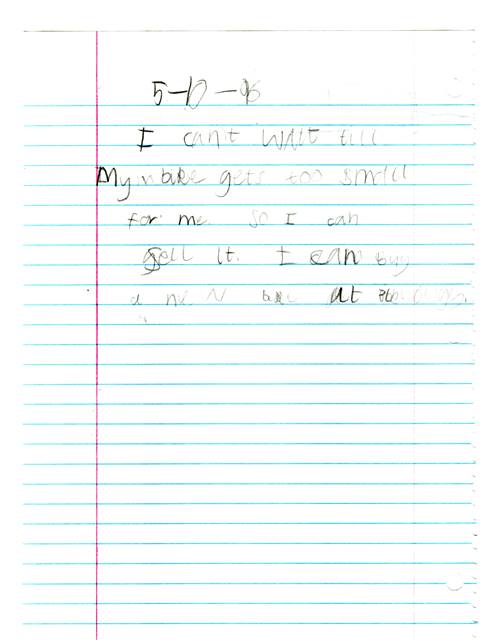 5-10-96
I can't wait till
My bike gets too small
for me. so I can
sell it. I can buy
a new bike at